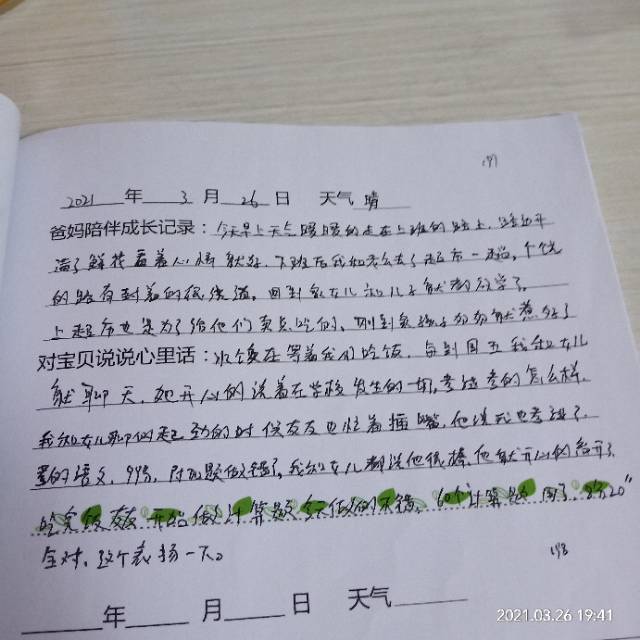 197
2021年3月26日 天气晴
爸妈陪伴成长记录：今天早上天气暖暖的走在上班的路上，路边开
满了鲜花看着心情就好，下班后我和老公去了超市一趟，个
的路有到着的很
上超市也是为了给他们卖点吃的，刚到家孩子
对宝贝说说心里话：在等着我们吃饭，每到周五我和女儿
就聊天，她开心的说着在学校发生的一切，考的怎么样，
我和女儿聊的起劲的时候友友也忙着插嘴，他说我也考
的语文，99分，题做错了，我和女儿都说他很棒，他就开心的
吃完饭友友开始做计算题今天做的不错，60个计算题用了8分20"
全对，这个表扬一下。
198
年 月 日 天气
2021.03.26 19:41